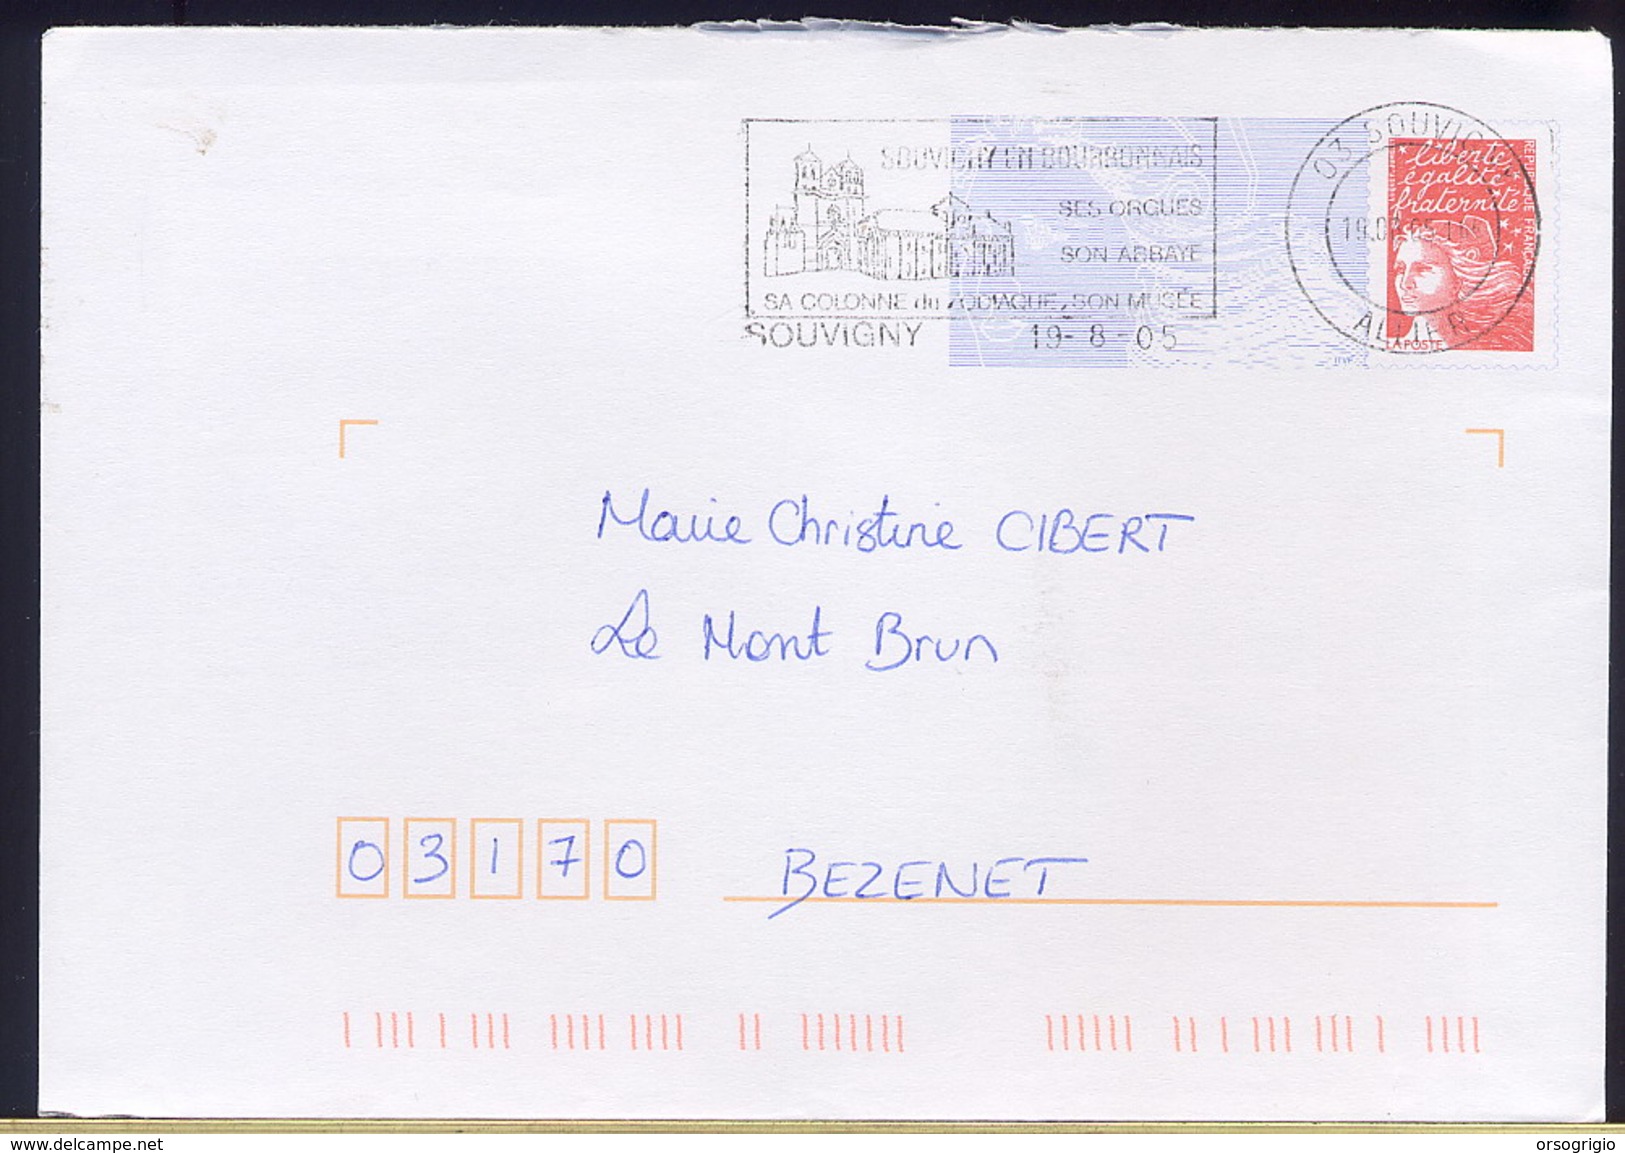 SOUVIGNY EN BOURBONNAIS
SES ORGUES
SON ABBAYE
SA COLONNE du ZODIAQUE, SON MUSÉE
SOUVIGNY 19-8-05
03 SOUVIGNY
ALLIER
liberté
égalité
fraternité
RÉPUBLIQUE FRANÇAISE
LA POSTE
Marie Christine CIBERT
Le Mont Brun
03170 BEZENET
www.delcampe.net
orsogrigio